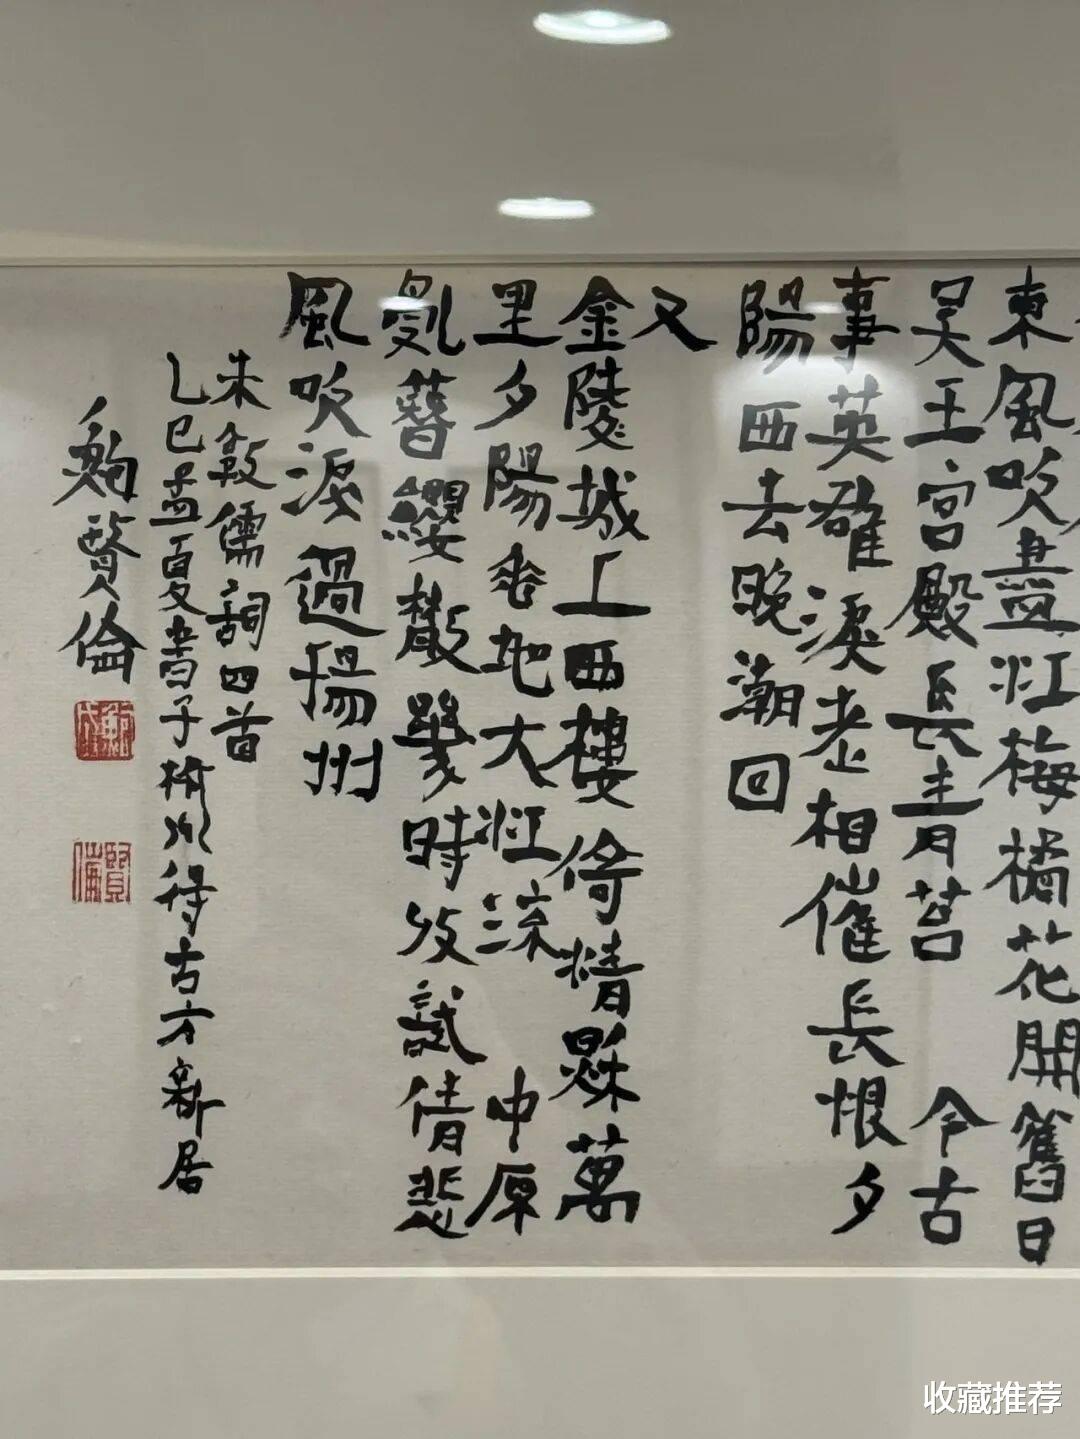 東風吹盡江梅橘花開舊日
吳王宮殿長青苔 今古
事英雄淚老相催長恨夕
陽西去晚潮回
又
金陵城上西樓倚清秋萬
里夕陽垂地大江流 中原
亂簪纓散幾時收試倩悲
風吹淚過揚州
朱敦儒詞四首
乙巳孟夏書于得古方新居
鮑賢倫
賢倫
收藏推荐